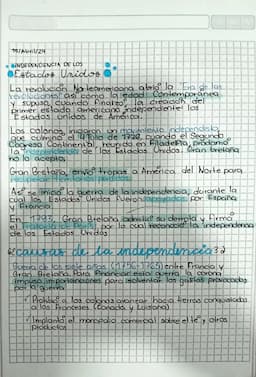 INDEPENDENCIA DE LOS
Estados Unidos
La revolución Norteamericana abrió la "Era de las
revoluciones" así como la edad Contemporánea
y supuso, cuando finalizó, la creación del
primer estado americano independiente: los
Estados unidos de América.
Los colonos inician un movimiento independista
que culminó el 4 Julio de 1776, cuando el Segundo
Congreso Continental, reunido en Filadelfia, proclamó
la independencia de los Estados Unidos. Gran bretaña
no lo acepta.
Gran Bretaña, envió tropas a América del Norte para
Así se inició la guerra de la independencia, durante la
cual los Estados Unidos fueron apoyados por España
y Francia
En 1783, Gran Bretaña admitió su derrota y firmó
el Tratado de París por la cual reconoció la independencia
de los Estados Unidos
causas de la independencia
Guerra de los siete años (1756-1763) entre Francia y
Gran Bretaña. Para financiar esta guerra la corona
impuso para solventar los gastos provocados
por la guerra
Prohibió a los colonos avanzar hacia tierras conquistadas
a los franceses (Canadá y Luisiana)
Implantó el monopolio comercial sobre el té y otros
productos